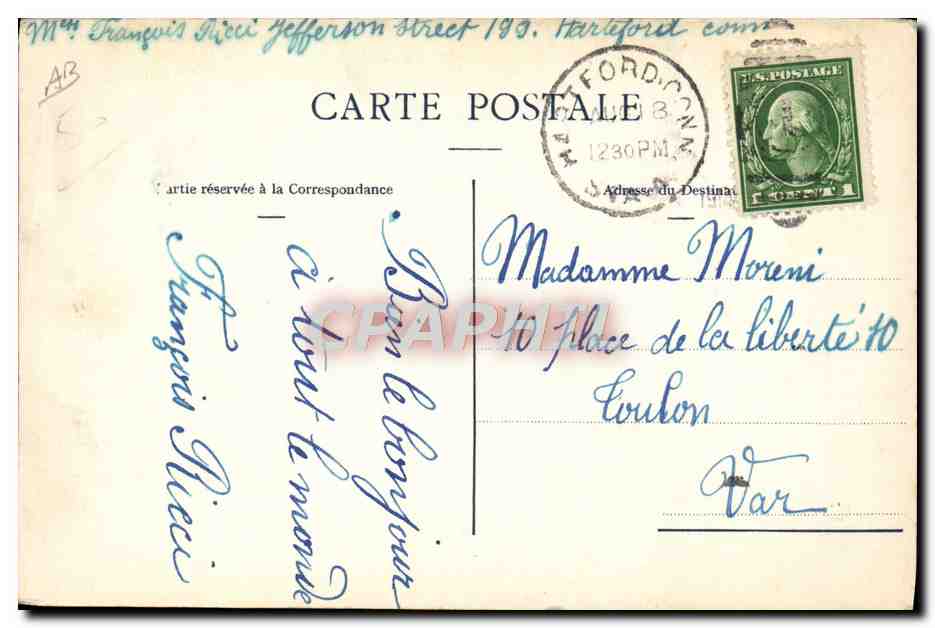 François Ricci Jefferson Street 199. Harteford conn
AB
CARTE POSTALE
HARTFORD.CONN.
AUG 18
1230PM
U.S.POSTAGE
1 CENT 1
artie réservée à la Correspondance
Adresse du Destina
Bon le bonjour
à tout le monde
François Ricci
Madamme Moreni
10 place de la liberté 10
Toulon
Var
CPAPHIL